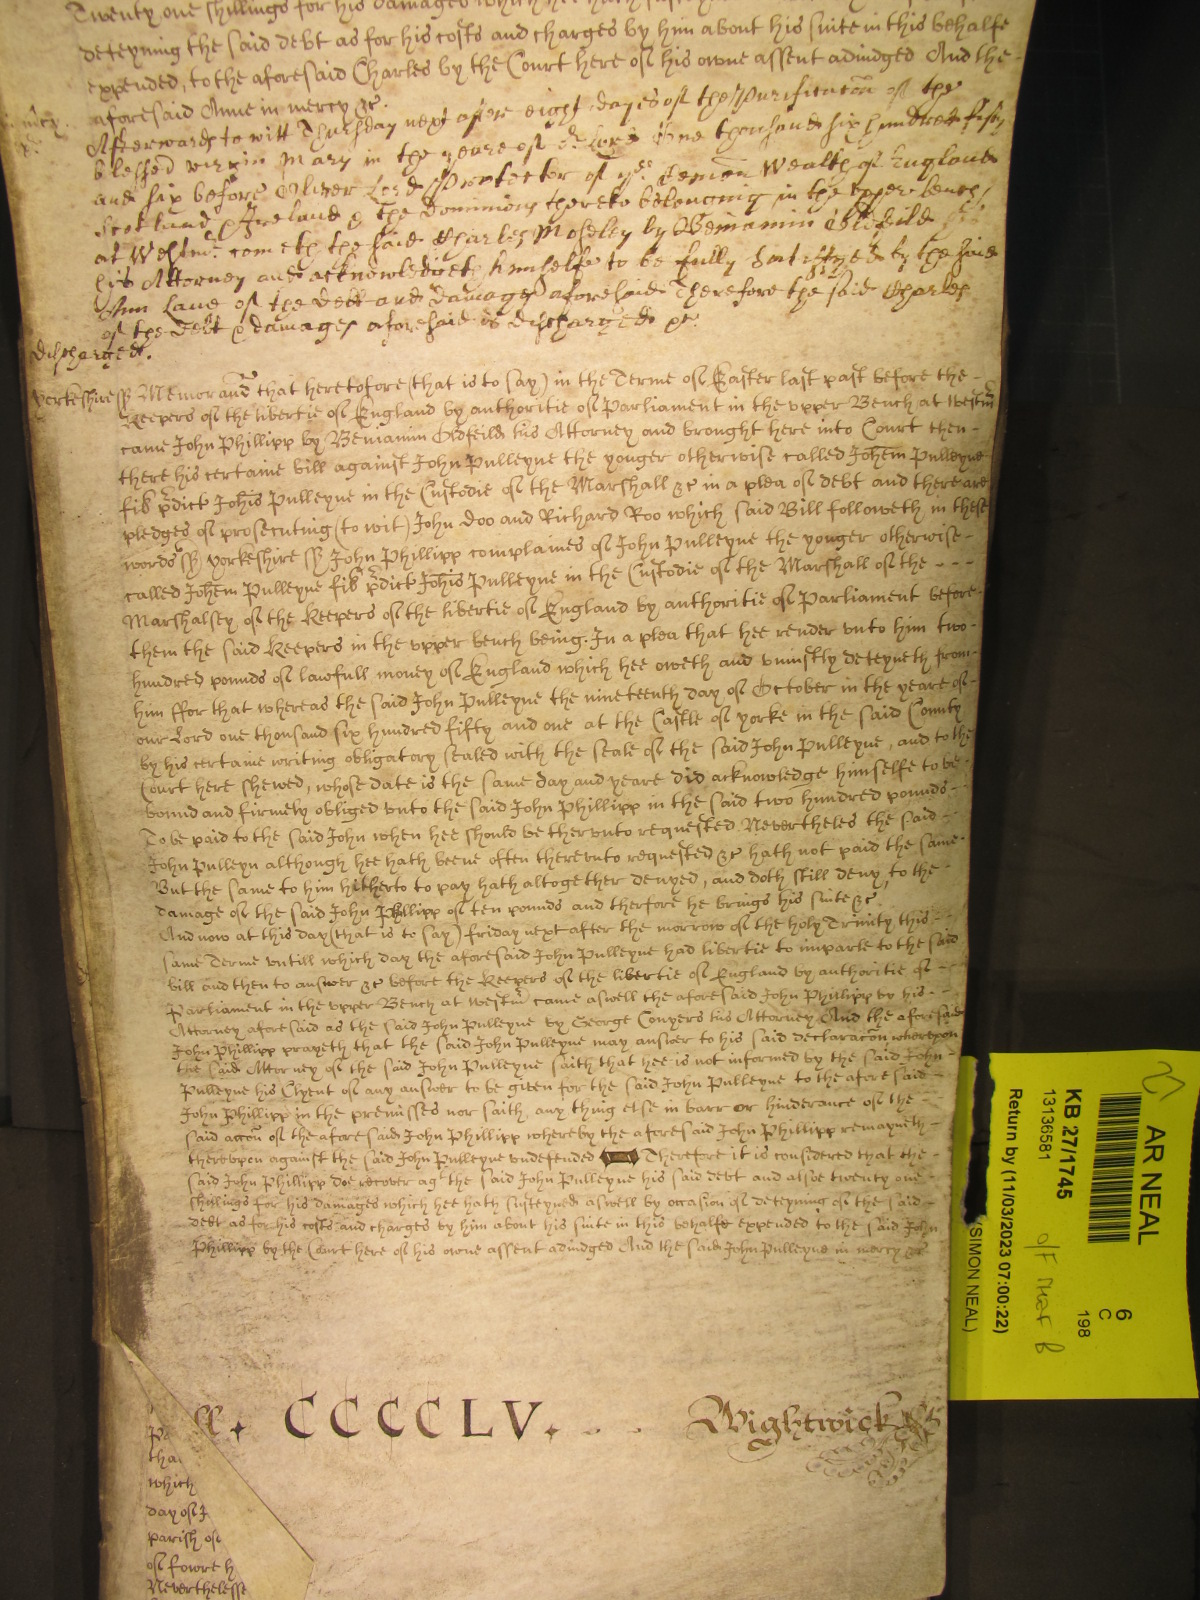 Twenty one shillings for his damages which hee hath
deteyning the said debt as for his costs and charges by him about his suite in this behalfe
expended, to the aforesaid Charles by the Court here of his owne assent adiudged And the
aforesaid Anne in mercy &c.
Afterwards to witt Thursday next after eight dayes of the Purificacon of the
blessed virgin Mary in the yeare of or Lord One thousand six hundred fifty
and six before Oliver Lord Protector of ye Comon Wealth of England
Scotland & Ireland & the Dominions thereto belonging in the upper bench
at Westmr. cometh the said Charles Mosley by Beniamin Oldfeild
his Attorney and acknowledgeth himselfe to be fully satisfyed by the said
Ann Lane of the debt and damages aforesaid Therefore the said Charles
of the debt & damages aforesaid is discharged &c.
discharged.
Yorkeshire ss Memorand that heretofore (that is to say) in the Terme of Easter last past before the
Keepers of the libertie of England by authoritie of Parliament in the vpper Bench at Westm
came John Phillipp by Beniamin Oldfeild his Attorney and brought here into Court then
there his certaine bill against John Pulleyne the yonger otherwise called Johem Pulleyne
fil pdict Johis Pulleyne in the Custodie of the Marshall &c in a plea of debt and there are
pledges of prosecuting (to wit) John Doo and Richard Roo which said Bill followeth in these
words ss Yorkeshire ss John Phillipp complaines of John Pulleyne the yonger otherwise
called Johem Pulleyne fil pdict Johis Pulleyne in the Custodie of the Marshall of the
Marshalsey of the Keepers of the libertie of England by authoritie of Parliament before
them the said Keepers in the vpper bench being. In a plea that hee render vnto him two
hundred pounds of lawfull money of England which hee oweth and vniustly deteyneth from
him ffor that whereas the said John Pulleyne the nineteenth day of October in the yeare of
our Lord one thousand six hundred fifty and one at the Castle of yorke in the said County
by his certaine writing obligatory sealed with the seale of the said John Pulleyne, and to the
Court here shewed, whose date is the same day and yeare did acknowledge himselfe to be
bound and firmely obliged vnto the said John Phillipp in the said two hundred pounds
To be paid to the said John when hee should be thervnto requested Nevertheles the said
John Pulleyn although hee hath beene often therevnto requested &c hath not paid the same
But the same to him hitherto to pay hath altogether denyed, and doth still deny, to the
damage of the said John Phillipp of ten pounds and therfore he brings his suite &c
And now at this day (that is to say) friday next after the morrow of the holy Trinity this
same Terme vntill which day the aforesaid John Pulleyne had libertie to imparle to the said
bill and then to answer &c before the Keepers of the libertie of England by authoritie of
Parliament in the vpper Bench at Westm came aswell the aforesaid John Phillipp by his
Attorney aforesaid as the said John Pulleyne by George Conyers his Attorney And the aforesaid
John Phillipp prayeth that the said John Pulleyne may answer to his said declaracon wherevpon
the said Attorney of the said John Pulleyne saith that hee is not informed by the said John
Pulleyne his Clyent of any answer to be given for the said John Pulleyne to the afore said
John Phillipp in the premisses nor saith any thing else in barr or hinderance of the
said accon of the aforesaid John Phillipp whereby the aforesaid John Phillipp remayneth
therevpon against the said John Pulleyne vndefended Therefore it is considered that the
said John Phillipp doe recover agt the said John Pulleyne his said debt and alsoe twenty one
shillings for his damages which hee hath susteyned aswell by occasion of deteyning of the said
debt as for his costs and charges by him about his suite in this behalfe expended to the said John
Phillipp by the Court here of his owne assent adiudged And the said John Pulleyne in mercy &c
ll. CCCCLV.
Wightwick
tha
which
day of J
parish of
of fowre h
Neverthelesse
AR NEAL
6
C
198
KB 27/1745
13136581
Return by (11/03/2023 07:00:22)
(SIMON NEAL)